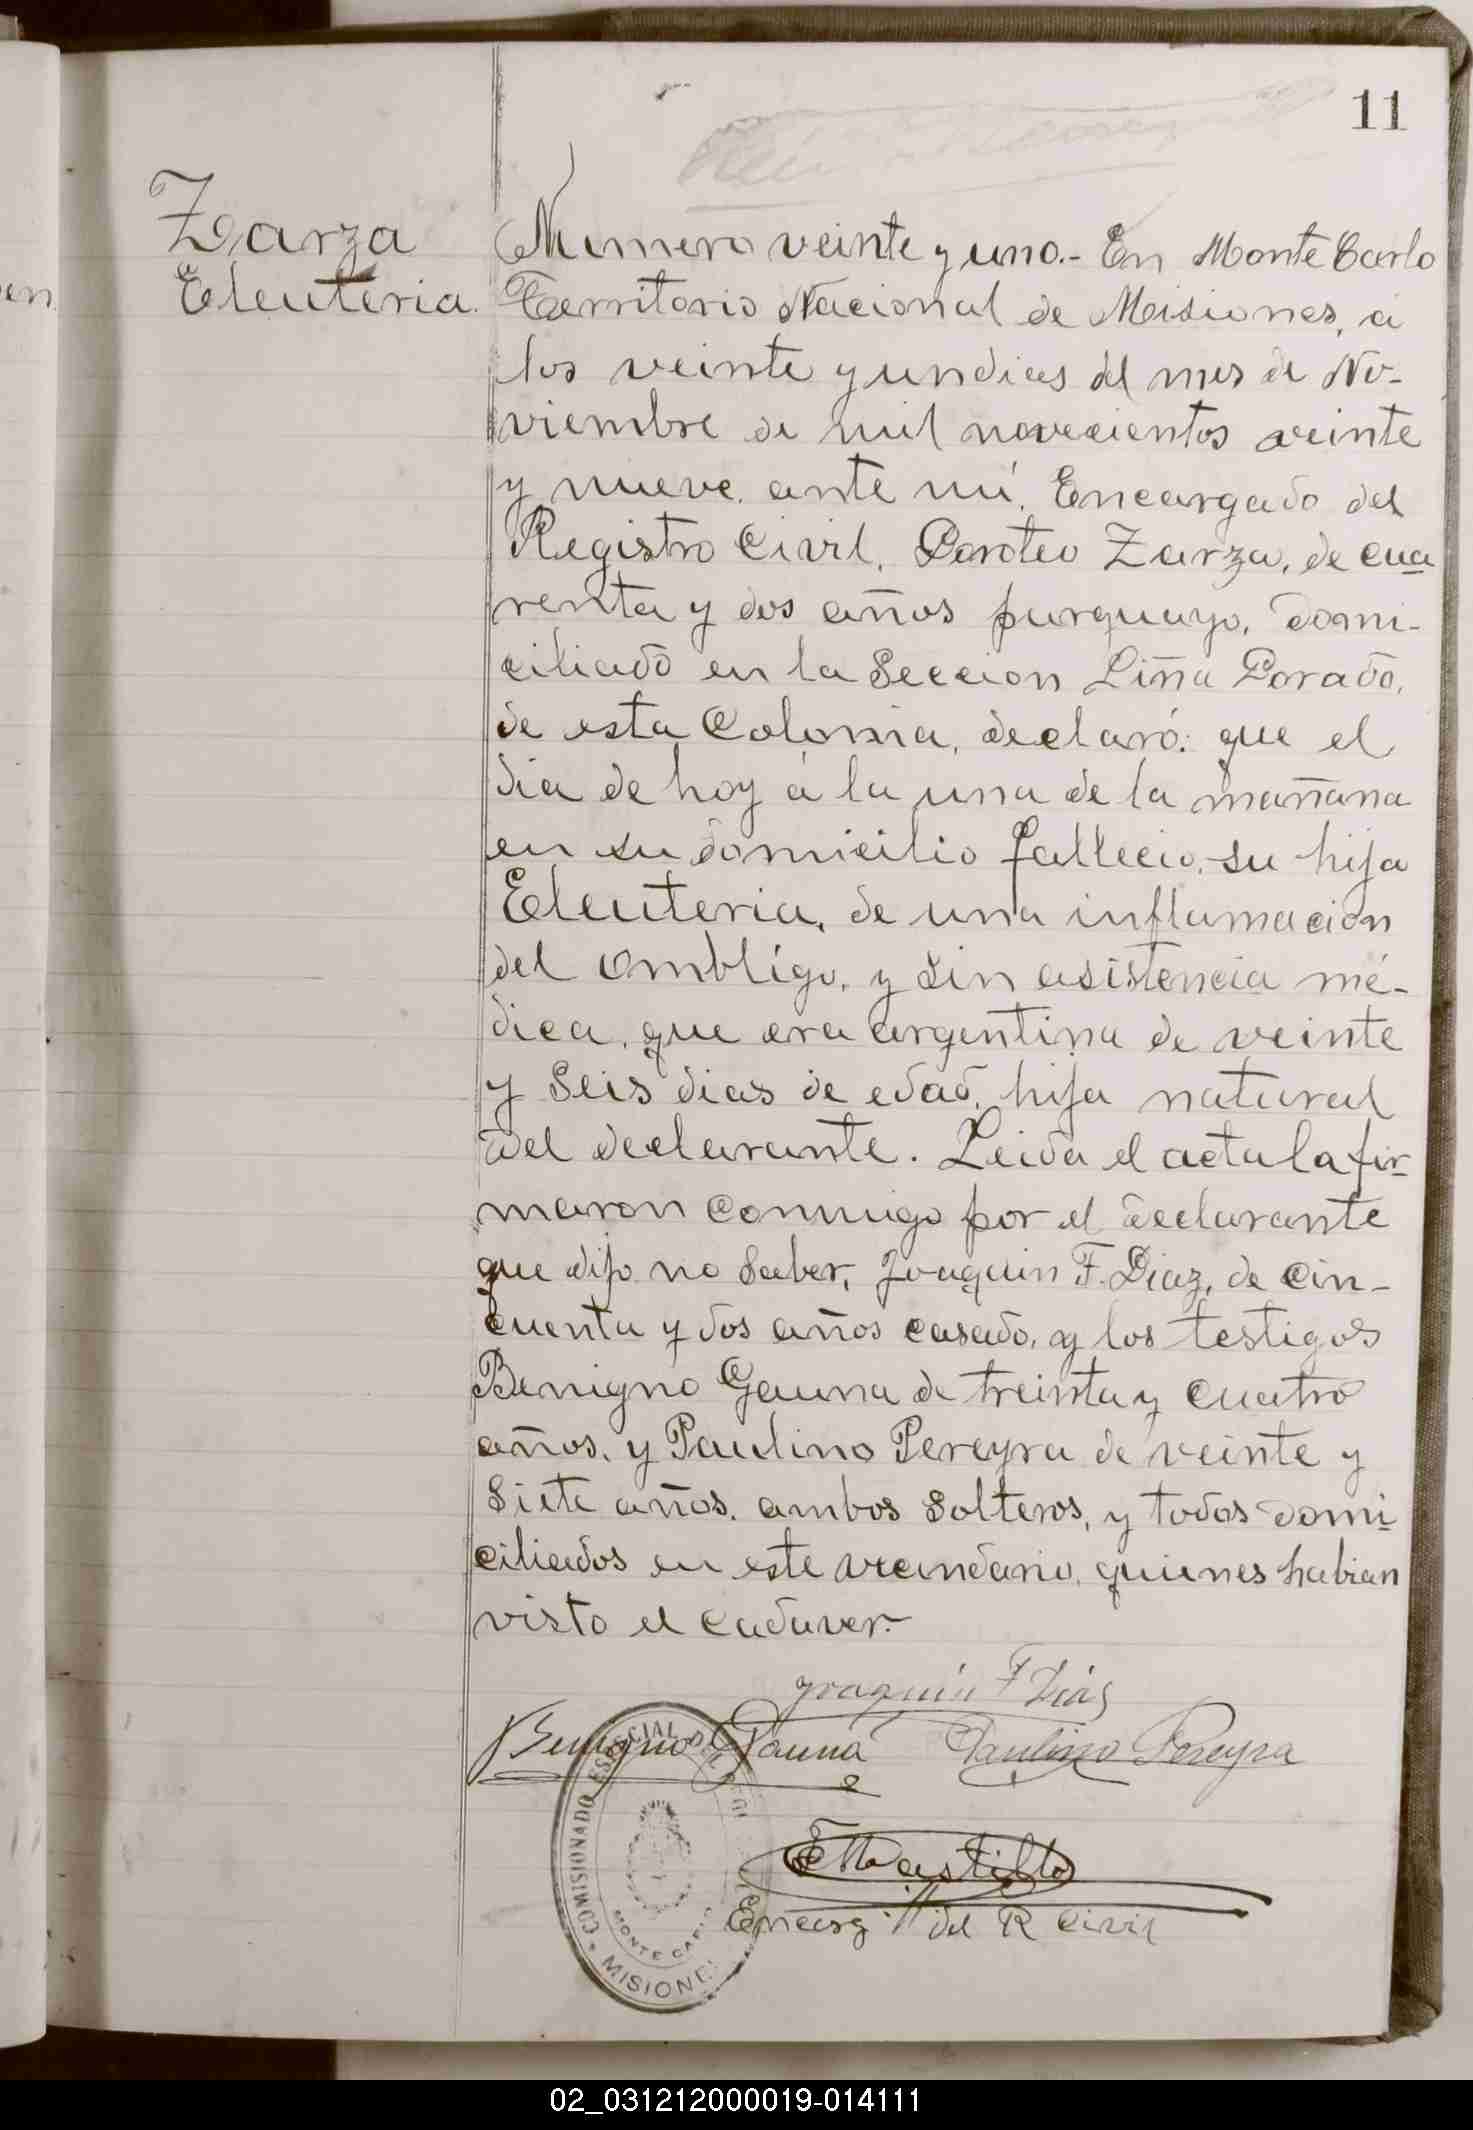 11
Zarza
Eleuteria.
Numero veinte y uno.- En Monte Carlo
Territorio Nacional de Misiones, á
los veinte y un dias del mes de No-
viembre de mil novecientos veinte
y nueve. ante mí, Encargado del
Registro Civil, Doroteo Zarza, de cua
renta y dos años purguayo, domi-
ciliado en la Seccion Liña Porado,
de esta Colonia, declaró: que el
dia de hoy á la una de la mañana
en su domicilio fallecio, su hija
Eleuteria, de una inflamacion
del ombligo, y sin asistencia mé-
dica, que era argentina de veinte
y seis dias de edad, hija natural
del declarante. Leida el acta la fir-
maron conmigo por el declarante
que dijo no saber, Joaquin F. Diaz, de cin-
cuenta y dos años casado, y los testigos
Benigno Gauna de treinta y cuatro
años, y Paulino Pereyra de veinte y
siete años. ambos solteros, y todos domi
ciliados en este vecindario, quienes habian
visto el cadaver.-
Joaquin F Diás
Benigno Gauna Paulino Pereyra
COMISIONADO ESPECIAL DEL
MONTE CARLO
MISIONES
Castillo
Encarg del R Civil
02_031212000019-014111